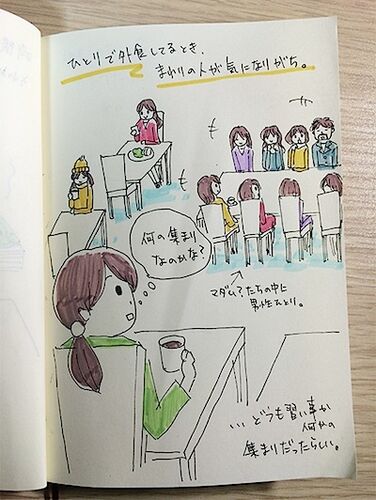 ひとりで外食してるとき、
まわりの人が気になりがち。
何の集まり
なのかな?
マダム?たちの中に
男性ひとり。
... どうも習い事か
何かの
集まりだったらしい。